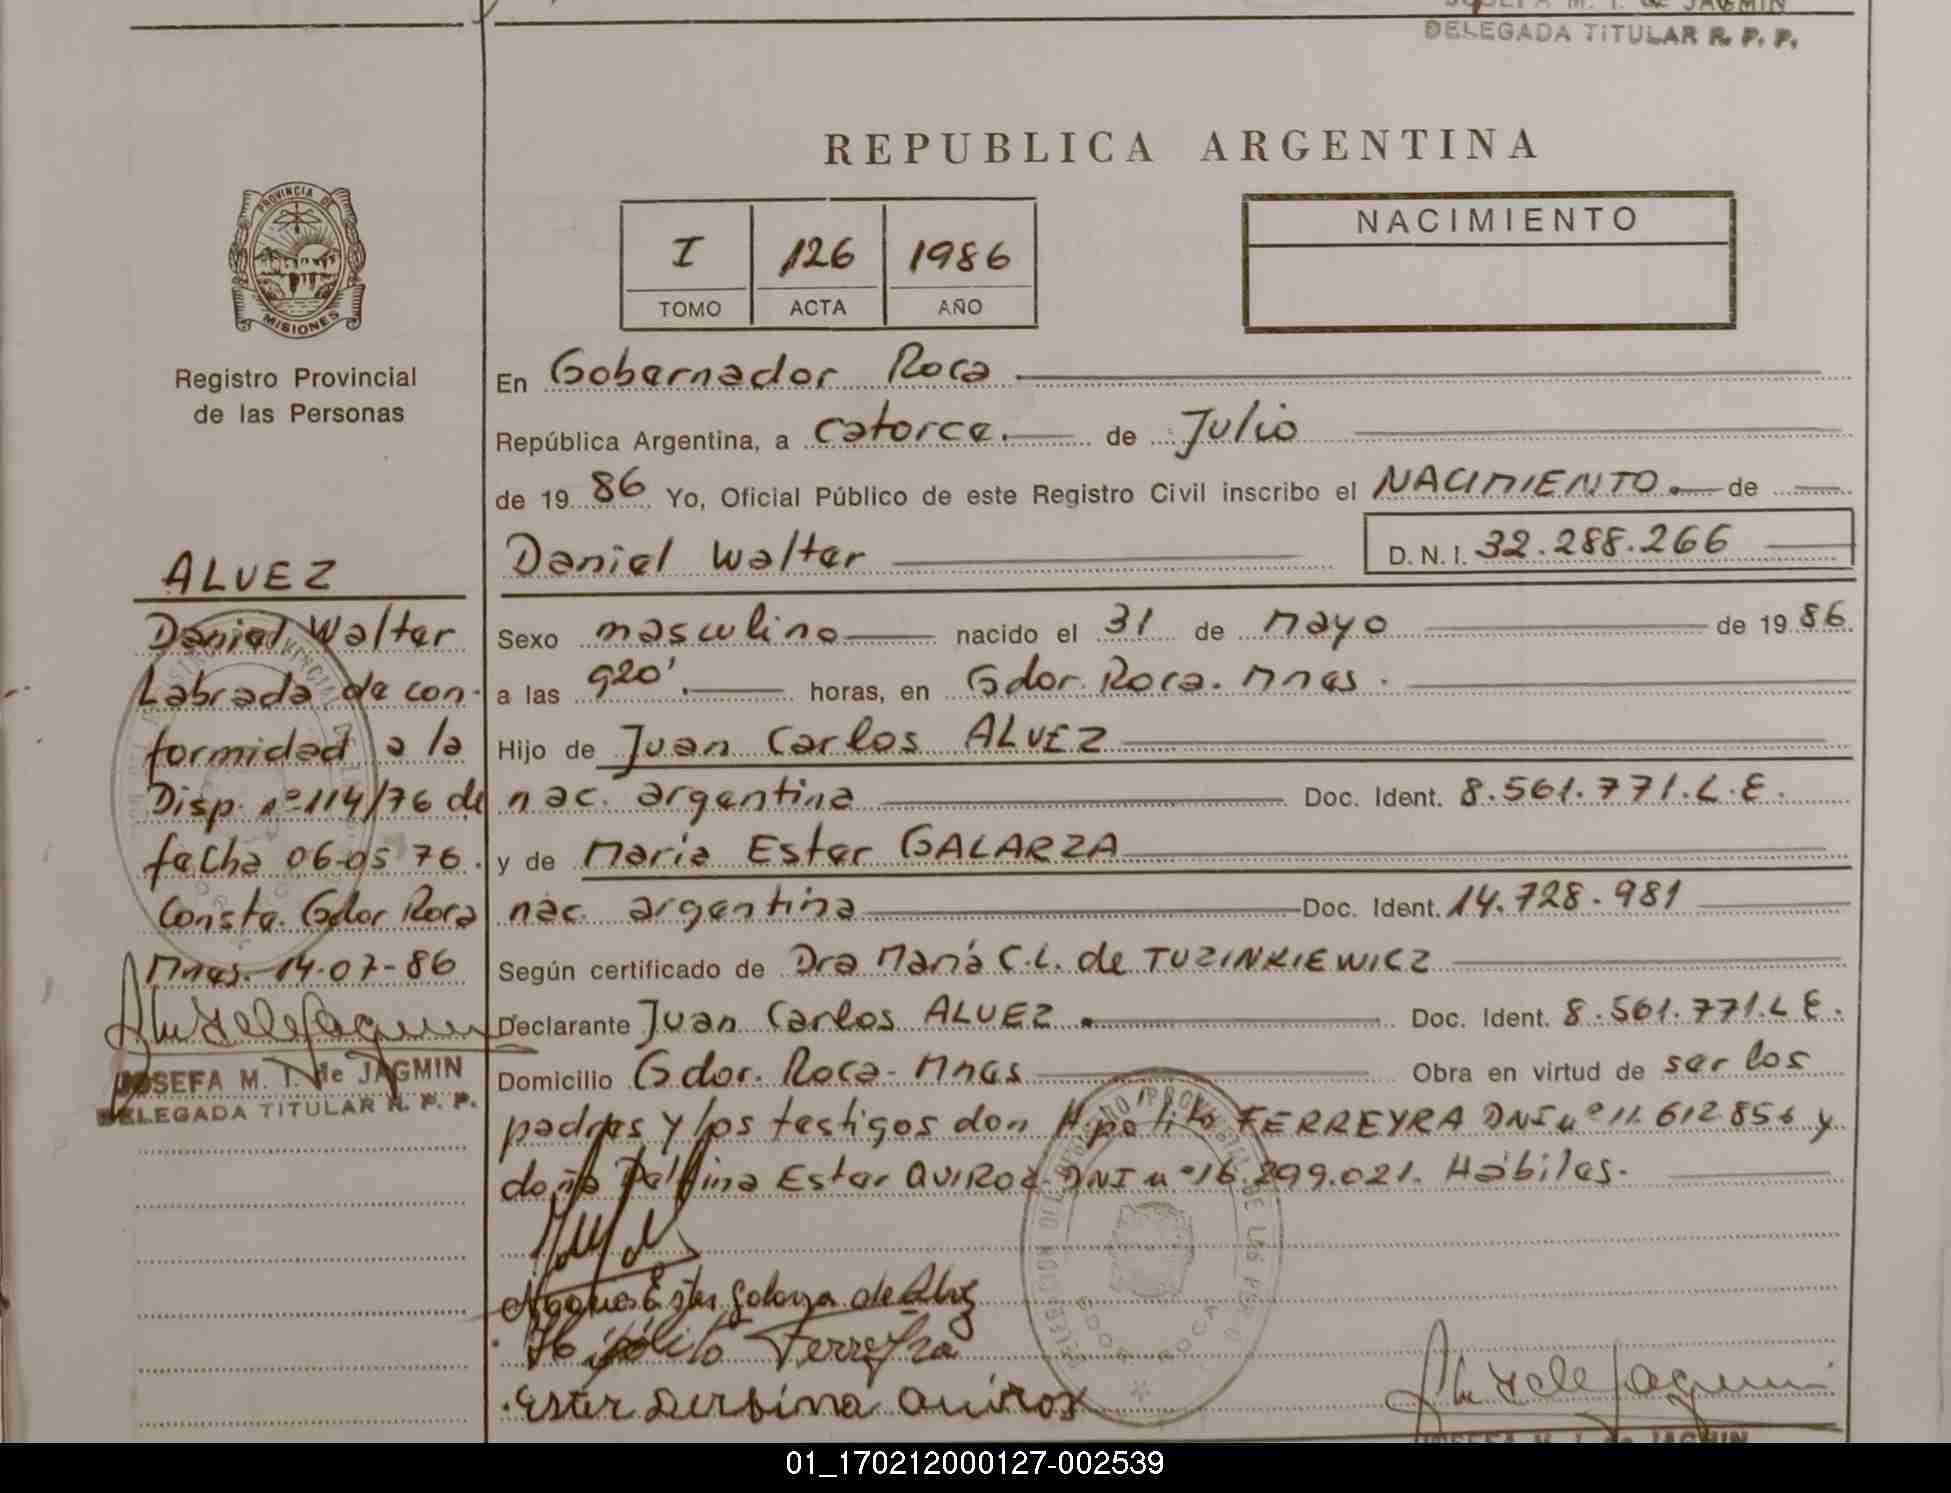 JOSEFA M. T. de JAGMIN
DELEGADA TITULAR R. P. P.
REPUBLICA ARGENTINA
PROVINCIA DE
MISIONES
Registro Provincial
de las Personas
I 126 1986
TOMO ACTA AÑO
NACIMIENTO
En Gobernador Roca
República Argentina, a catorce. de Julio
de 19 86 Yo, Oficial Público de este Registro Civil inscribo el NACIMIENTO. de
Daniel Walter D. N. I. 32.288.266
Sexo masculino nacido el 31 de mayo de 19 86
a las 920'. horas, en Gdor. Roca. Mnes.
Hijo de Juan Carlos ALVEZ
nac. argentina Doc. Ident. 8.561.771.L.E.
y de María Ester GALARZA
nac. argentina Doc. Ident. 14.728.981
Según certificado de Dra María C.L. de TUZINKIEWICZ
Declarante Juan Carlos ALVEZ. Doc. Ident. 8.561.771.L E.
Domicilio Gdor. Roca - Mnes Obra en virtud de ser los
padres y los testigos don Hipolito FERREYRA DNI nº 11.612.856 y
doña Ester QUIROZ DNI nº 16.299.021. Hábiles.
Ester Galarza de Alvez
Hipólito Ferreyra
Ester Quiroz
ALVEZ
Daniel Walter
Labrada de con-
formidad a la
Disp. nº 114/76 de
fecha 06-05 76.
Conste. Gdor Roca
Mnes. 14-07-86
JOSEFA M. T. de JAGMIN
DELEGADA TITULAR R. P. P.
JOSEFA M. T. de JAGMIN
01_170212000127-002539